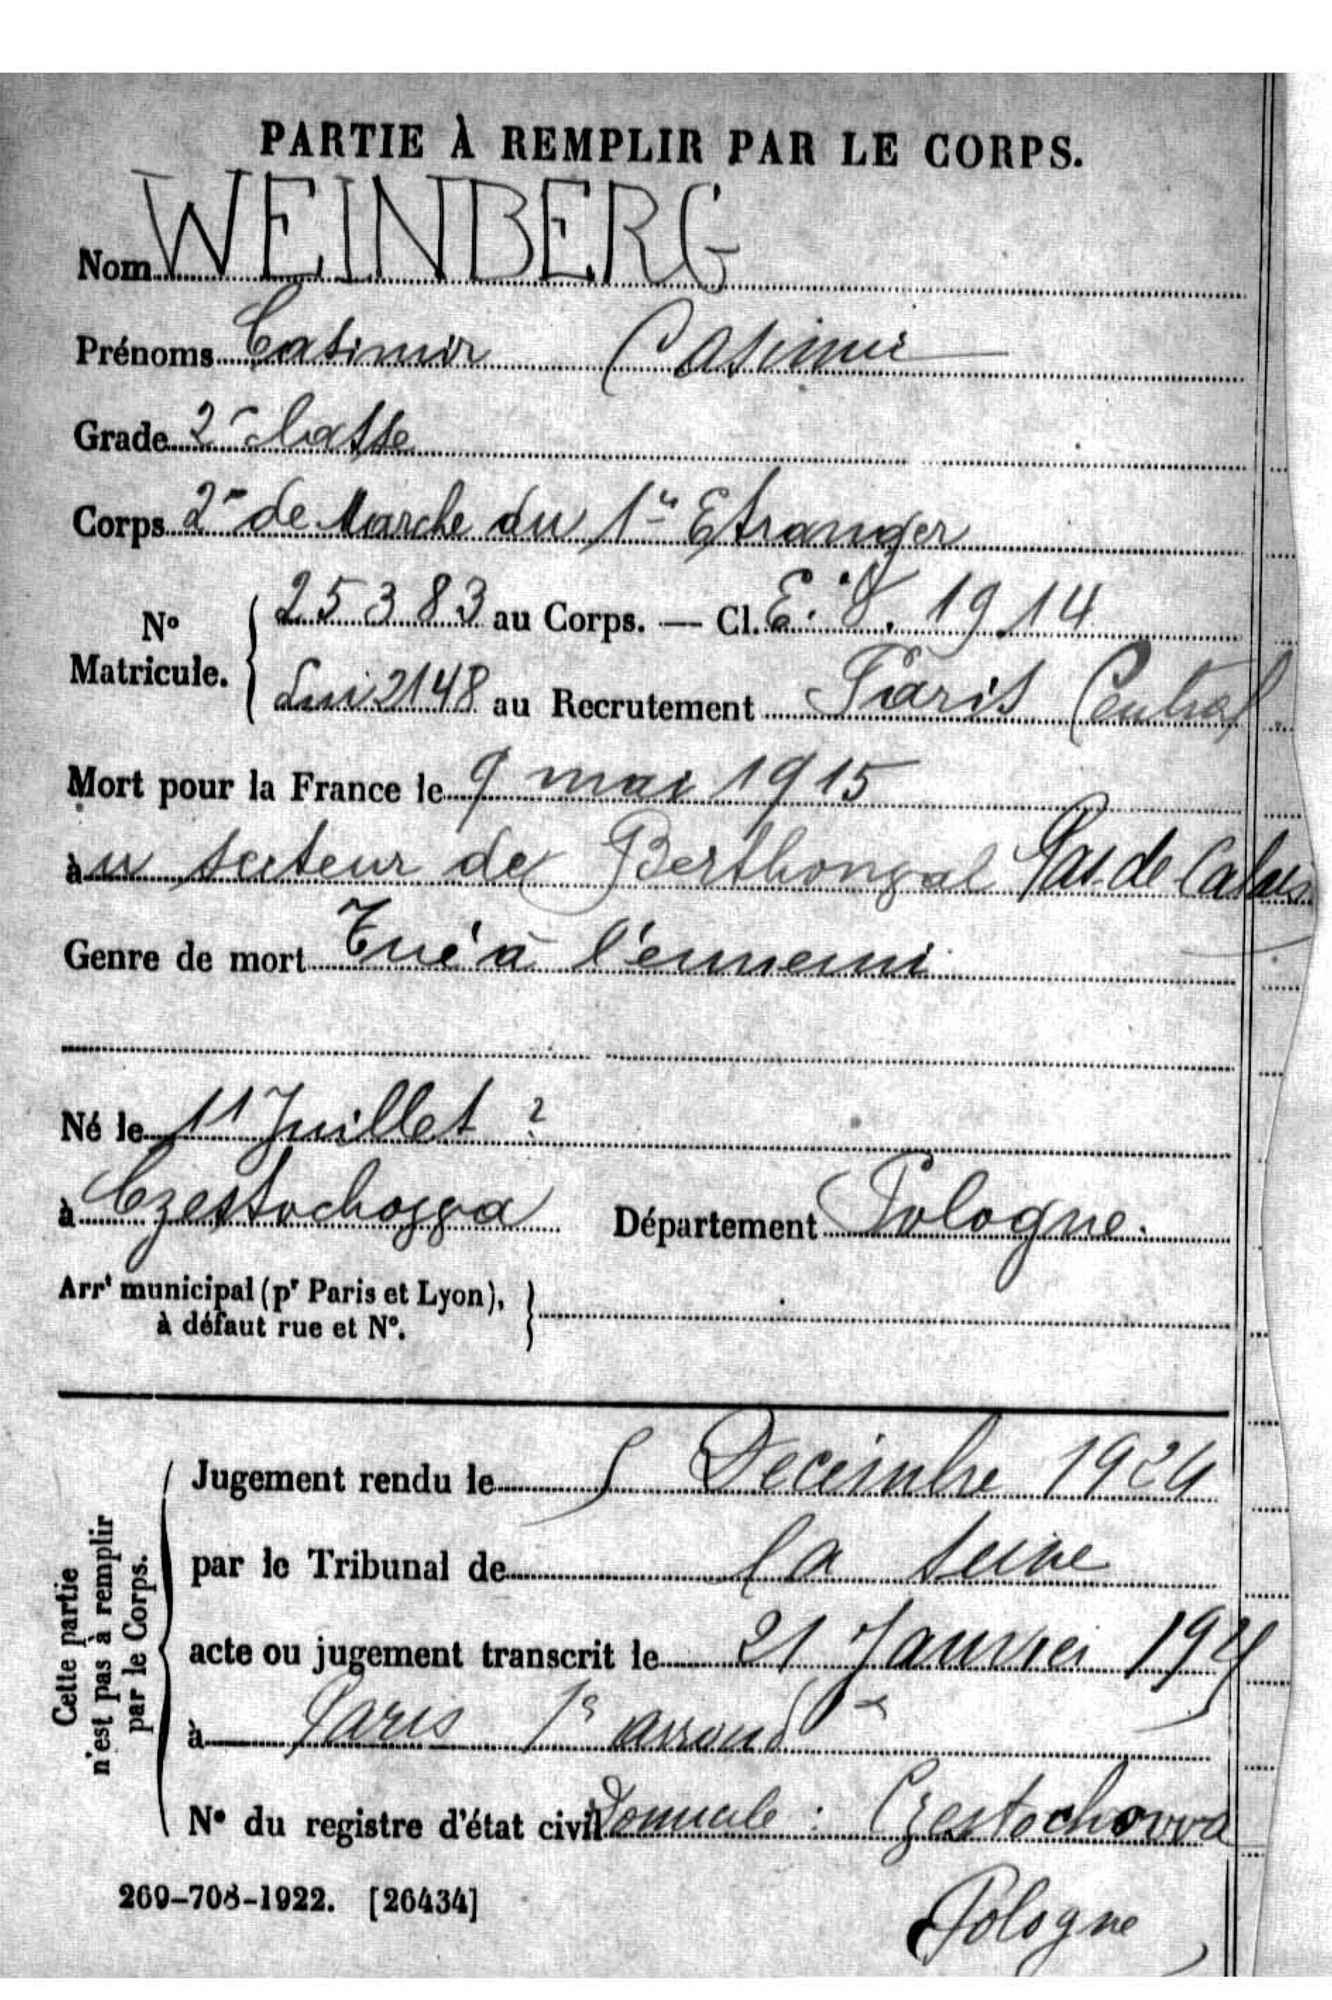 PARTIE À REMPLIR PAR LE CORPS.
Nom WEINBERG
Prénoms Casimir Casimir
Grade 2e classe
Corps 2e de Marche du 1er Etranger
No Matricule. 25383 au Corps. — Cl. E. V. 1914
2148 au Recrutement Paris Central
Mort pour la France le 9 mai 1915
au secteur de Berthonval Pas de Calais
Genre de mort Tué à l'ennemi
Né le 11 Juillet ?
à Département Pologne.
Arrt municipal (pr Paris et Lyon), à défaut rue et No.
Cette partie n'est pas à remplir par le Corps.
Jugement rendu le 5 Decembre 1924
par le Tribunal de la Seine
acte ou jugement transcrit le 21 Janvier
à Paris 1er arrondt
No du registre d'état civil Domicile : Czestochowa
Pologne
269-708-1922. [26434]